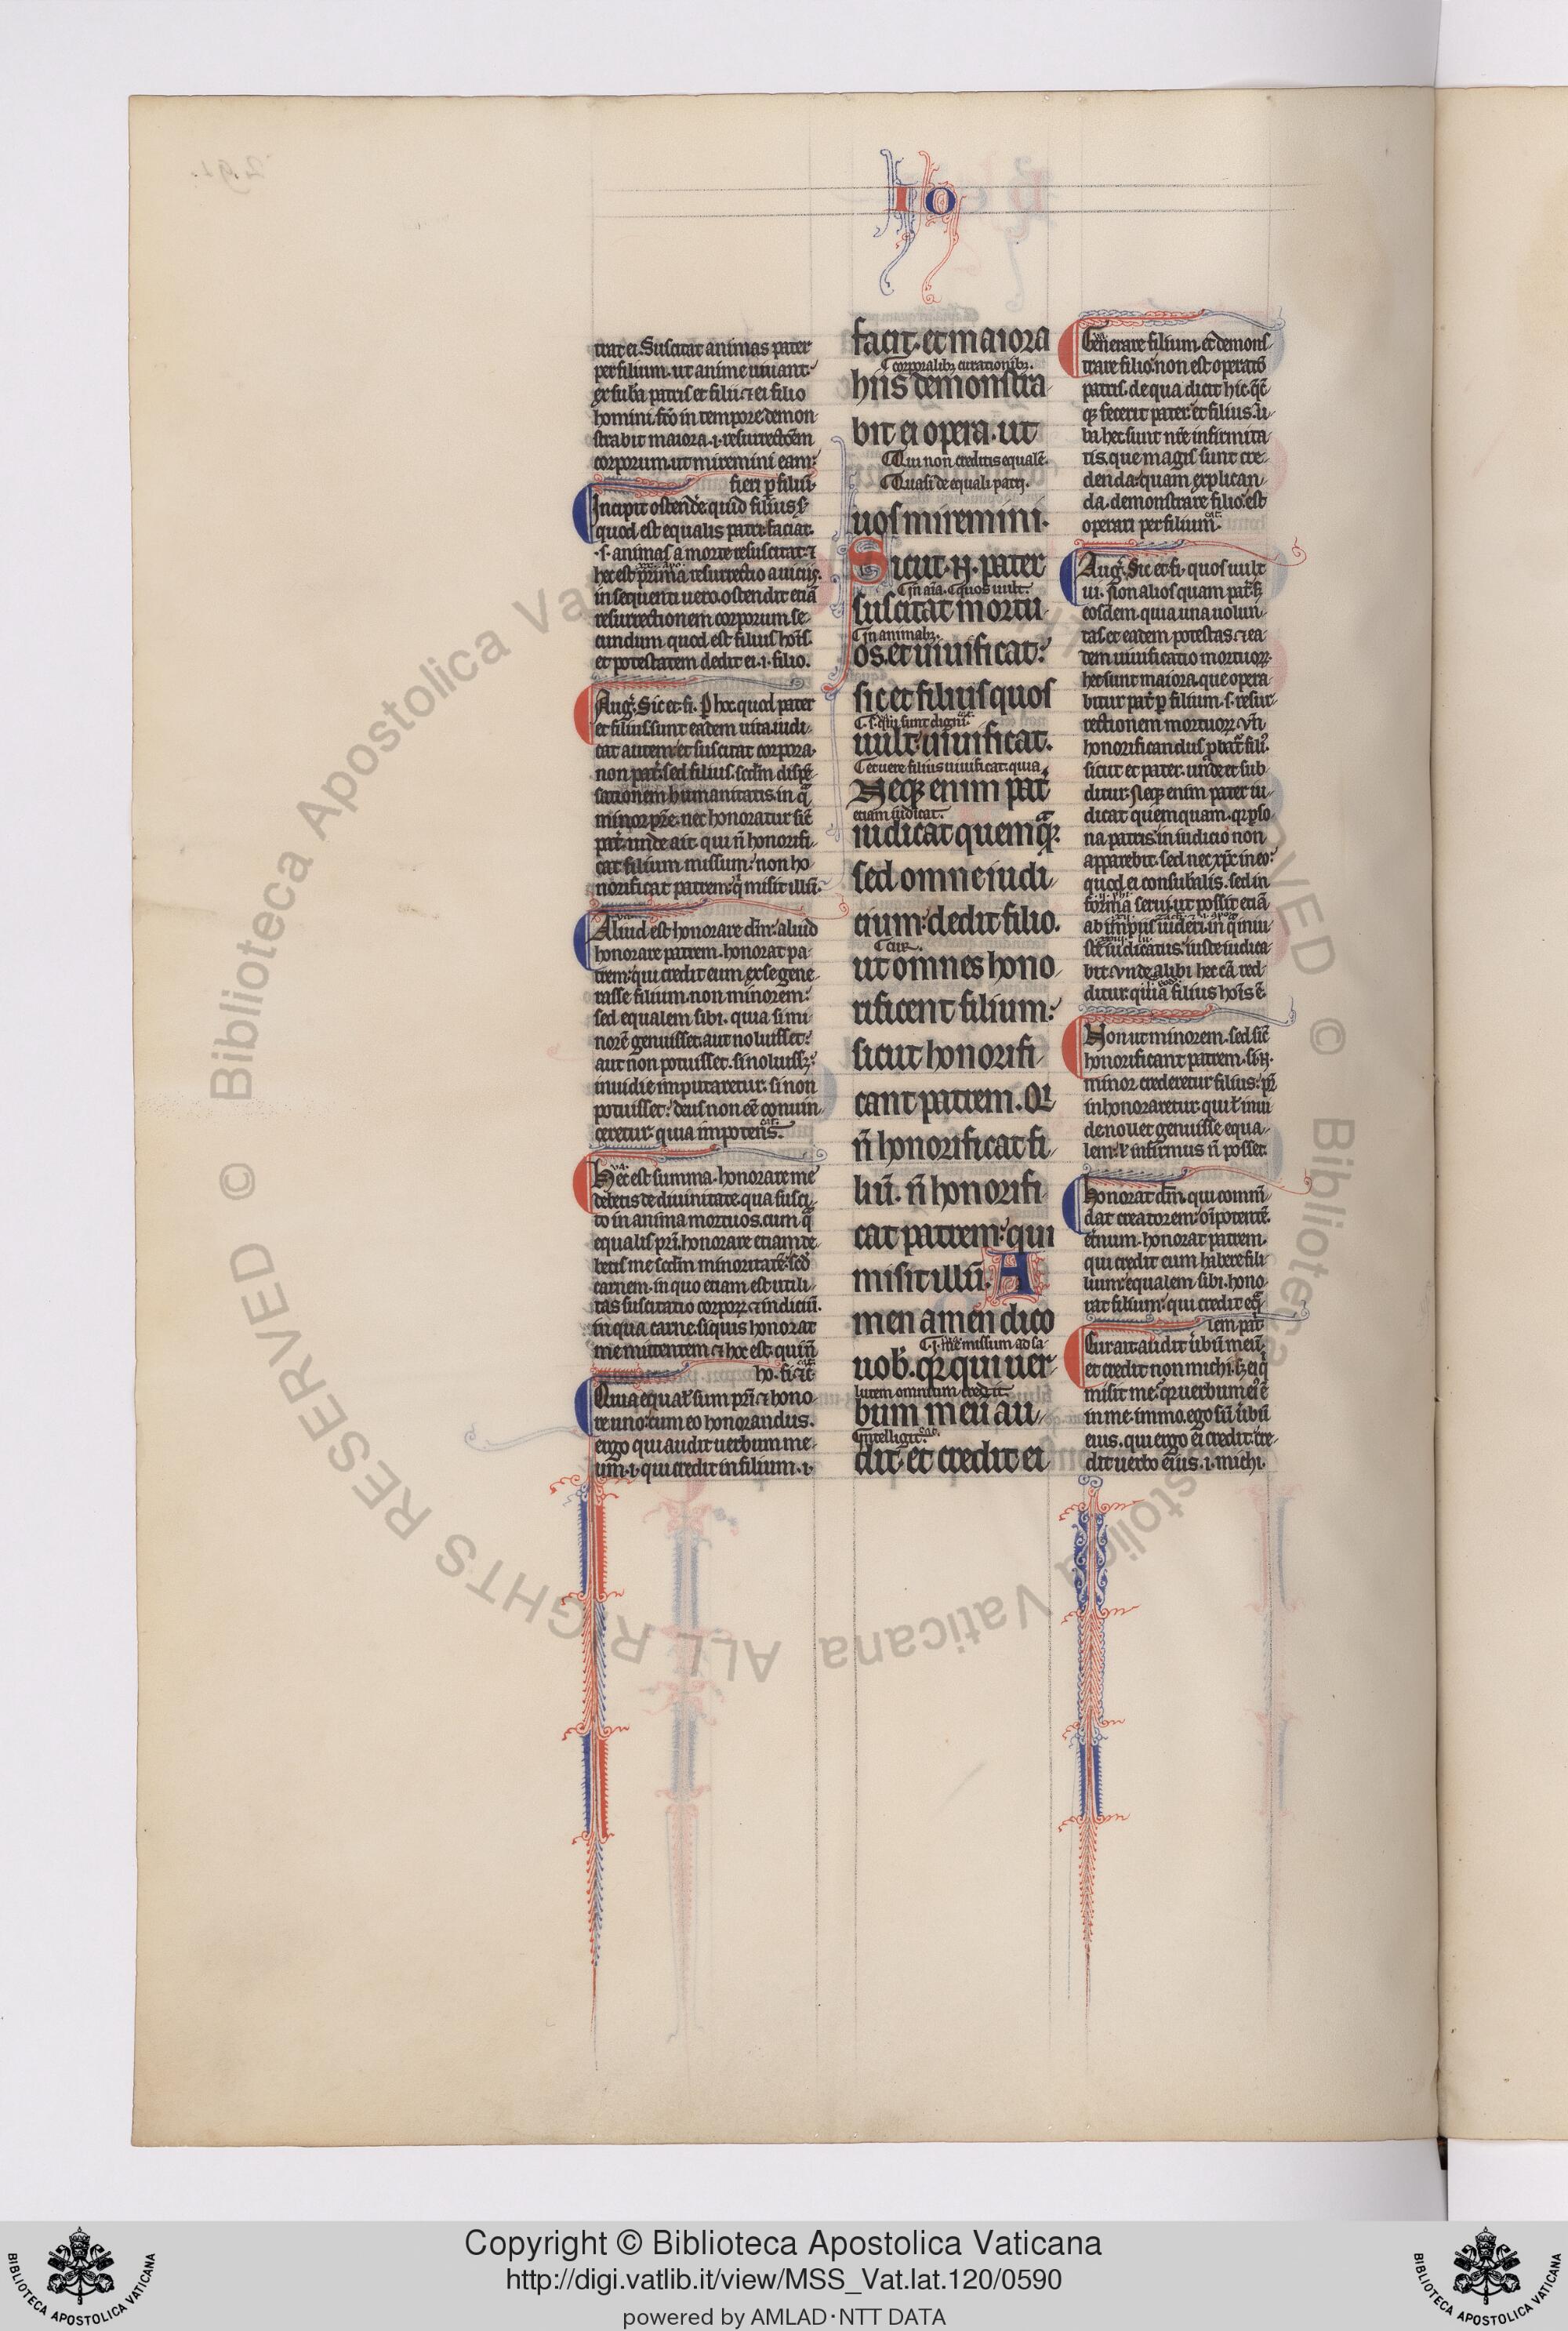 IO
trat ei. Suscitat animas pater
per filium. ut anime uiuant.
ex sub̄a patris et filii. ⁊ ei filio
homini. fc̄o in tempore demon-
strabit maiora .i. resurrectōem
corporum. ut miremini eam.
fieri ꝑ filiū.
Incipit ostendē quid filius s.
quod est equalis patri. faciat.
.s. animas a morte resuscitat. ⁊
hec est prima resurrectio a uiciis.
in sequenti uero. ostendit etiā
resurrectionem corporum. se-
cundum quod est filius hoīs.
et potestatem dedit ei .i. filio.
Aug. Sic et fi. ꝑ hoc quod pater
et filius sunt eadem uita. iudi-
cat autem. et suscitat corpora.
non pat̄. sed filius. scd̄m dispē-
sationem humanitatis. in q̄
minor pr̄e. nec honoratur sic̄
pat̄. unde ait. qui n̄ honorifi-
cat filium missum. non ho-
norificat patrem. q̄ misit illū.
Aliud est honorare dm̄. aliud
honorare patrem. honorat pa-
trem. qui credit eum ex se gene-
rasse filium. non minorem.
sed equalem sibi. quia si mi-
norē genuisset. aut noluisset.
aut non potuisset. si noluissꝫ.
inuidie imputaretur. si non
potuisset. deus non eē conuin-
ceretur. quia impotens.
Hec est summa. honorare me
debetis de divinitate. qua susci-
to in anima mortuos. cum q̄
equalis pri. honorare etiam de-
betis me scd̄m minoritatē. scd̄
carnem. in quo etiam est utili-
tas. suscitatio corpoꝝ. ⁊ iudiciū.
in qua carne. si quis honorat
me mittentem. ⁊ hoc est. qui n̄
ho. fi. ⁊c̄
Quia equal̄ sum pri. ⁊ hono-
re uno. cum eo honorandus.
ergo qui audit uerbum me-
um .i. qui credit in filium .i.
facit. et maiora
corporalibꝫ curationibꝫ.
hiis demonstra-
bit ei opera. ut
Qui non creditis equalē.
Quasi de equali patri.
uos miremini.
Sicut .n. pater
in aīa. quos uult.
suscitat mortu-
in animabꝫ.
os. et uiuificat.
sic et filius quos
sunt digni.
uult. uiuificat.
et uere filius uiuificat. quia
Neqꝫ enim pat̄
etiam iudicat.
iudicat quemqꝫ.
sed omne iudi-
cium. dedit filio.
cur.
ut omnes hono-
rificent filium.
sicut honorifi-
cant patrem. Qi
n̄ honorificat fi-
liū. n̄ honorifi-
cat patrem. qui
misit illū. A
men amen dico
missum ad sa-
uob̄. qꝫ qui uer-
lutem omnium credit
bum meū au-
intelligit.
dit. et credit ei
Generare filium. et demons-
trare filio. non est operatō
patris. de qua dicit hic. q̄c̄
qꝫ fecerit pater. et filius. u-
ba hec sunt nr̄e infirmita-
tis. que magis sunt cre-
denda. quam explican-
da. demonstrare filio. est
operari per filium.
Aug. Sic et fi. quos uult
ui. Non alios quam pat̄. sꝫ
eosdem. quia una uolun-
tas. et eadem potestas. ⁊ ea-
dem uiuificatio mortuoꝝ.
hec sunt maiora. que opera-
bitur pat̄ ꝑ filium .s. resur-
rectionem mortuoꝝ. vn̄
honorificandus ꝓbat̄ fili᷒.
sicut et pater. unde et sub-
ditur. Neqꝫ enim pater iu-
dicat quemquam. qꝫ ꝑso-
na patris in iudicio non
apparebit. sed nec xp̄c in eo.
quod ei consub̄alis. sed in
forma serui. ut possit etiā
ab impiis uideri. in q̄ iniu-
ste iudicatus. iuste iudica-
bit. vnde alibi hec cā red-
ditur. quia filius hoīs ē.
Non ut minorem. sed sic̄
honorificant patrem. si .n.
minor crederetur filius. pr̄
inhonoraretur. qui uł inui-
de nollet genuisse equa-
lem. uł infirmus n̄ posset.
honorat dm̄. qui comm̄-
dat creatorem. oīpotentē.
et̄num. honorat patrem.
qui credit eum habere fili-
lium. equalem sibi. hono-
rat filium. qui credit eq̄-
lem pat̄
Cur ait audit ūbū meū.
et credit non michi. sꝫ ei q̄
misit me. qꝫ uerbum ei᷒ ē
in me. immo. ego sū ūbū
eius. qui ergo ei credit. cre-
dit uerbo eius .i. michi.
Copyright © Biblioteca Apostolica Vaticana
http://digi.vatlib.it/view/MSS_Vat.lat.120/0590
powered by AMLAD·NTT DATA
BIBLIOTECA APOSTOLICA VATICANA
BIBLIOTECA APOSTOLICA VATICANA